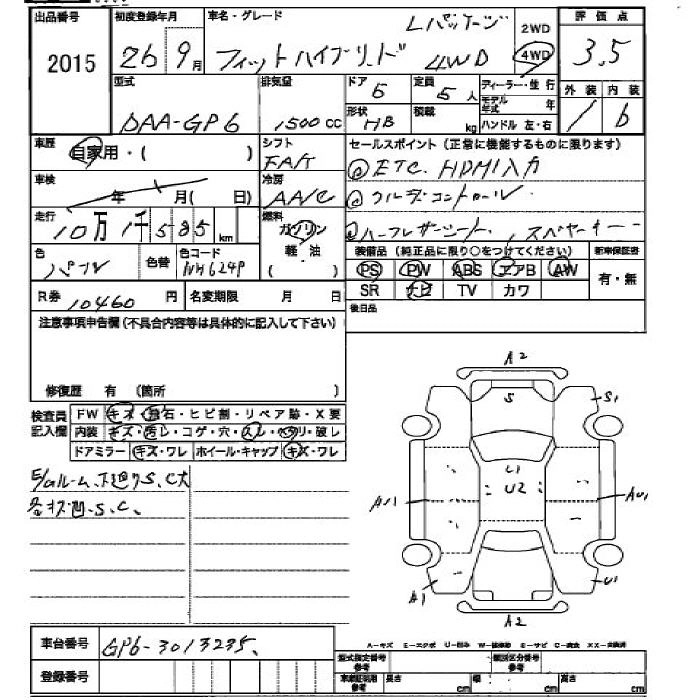 出品番号 初度登録年月 車名・グレード Lパッケージ 2WD 評価点
2015 26 9月 フィットハイブリッド 4WD 4WD 3.5
型式 排気量 ドア 5 定員 5人 ディーラー・並行 外装 内装
DAA-GP6 1500cc 形状 HB 積載 kg モデル年式 年 ハンドル 左・右 1 b
車歴 自家用・( ) シフト FAT セールスポイント(正常に機能するものに限ります)
ETC. HDMI入力
車検 年 月( 日) 冷房 AA/C クルーズコントロール
走行 10万1千585km 燃料 ガソリン 軽・油 ( ) ハーフレザーシート、スペアキー
色 パール 色替 色コード NH624P 装備品(純正品に限り○をつけてください) 新車保証書
PS PW ABS エアB AW 有・無
R券 10460円 名変期限 月 日 SR ナビ TV カワ
注意事項申告欄(不具合内容等は具体的に記入して下さい) 後日品
修復歴 有 (箇所 )
検査員記入欄 FW キズ・飛石・ヒビ割・リペア跡・X要
内装 キズ・汚レ・コゲ・穴・スレ・ヘタリ・破レ
ドアミラー キズ・ワレ ホイール・キャップ キズ・ワレ
下廻りS、C大
各キズ凹、S、C、
A2
S
S1
U1
U2
AU1
AU1
A1
U1
A2
車台番号 GP6-3013235
A-キズ E-エクボ U-凹み W-補修跡 S-サビ C-腐食 XX-交換済
登録番号 型式指定番号 参考 類別区分番号 参考
車庫証明用 参考 長さ cm 幅 cm 高さ cm